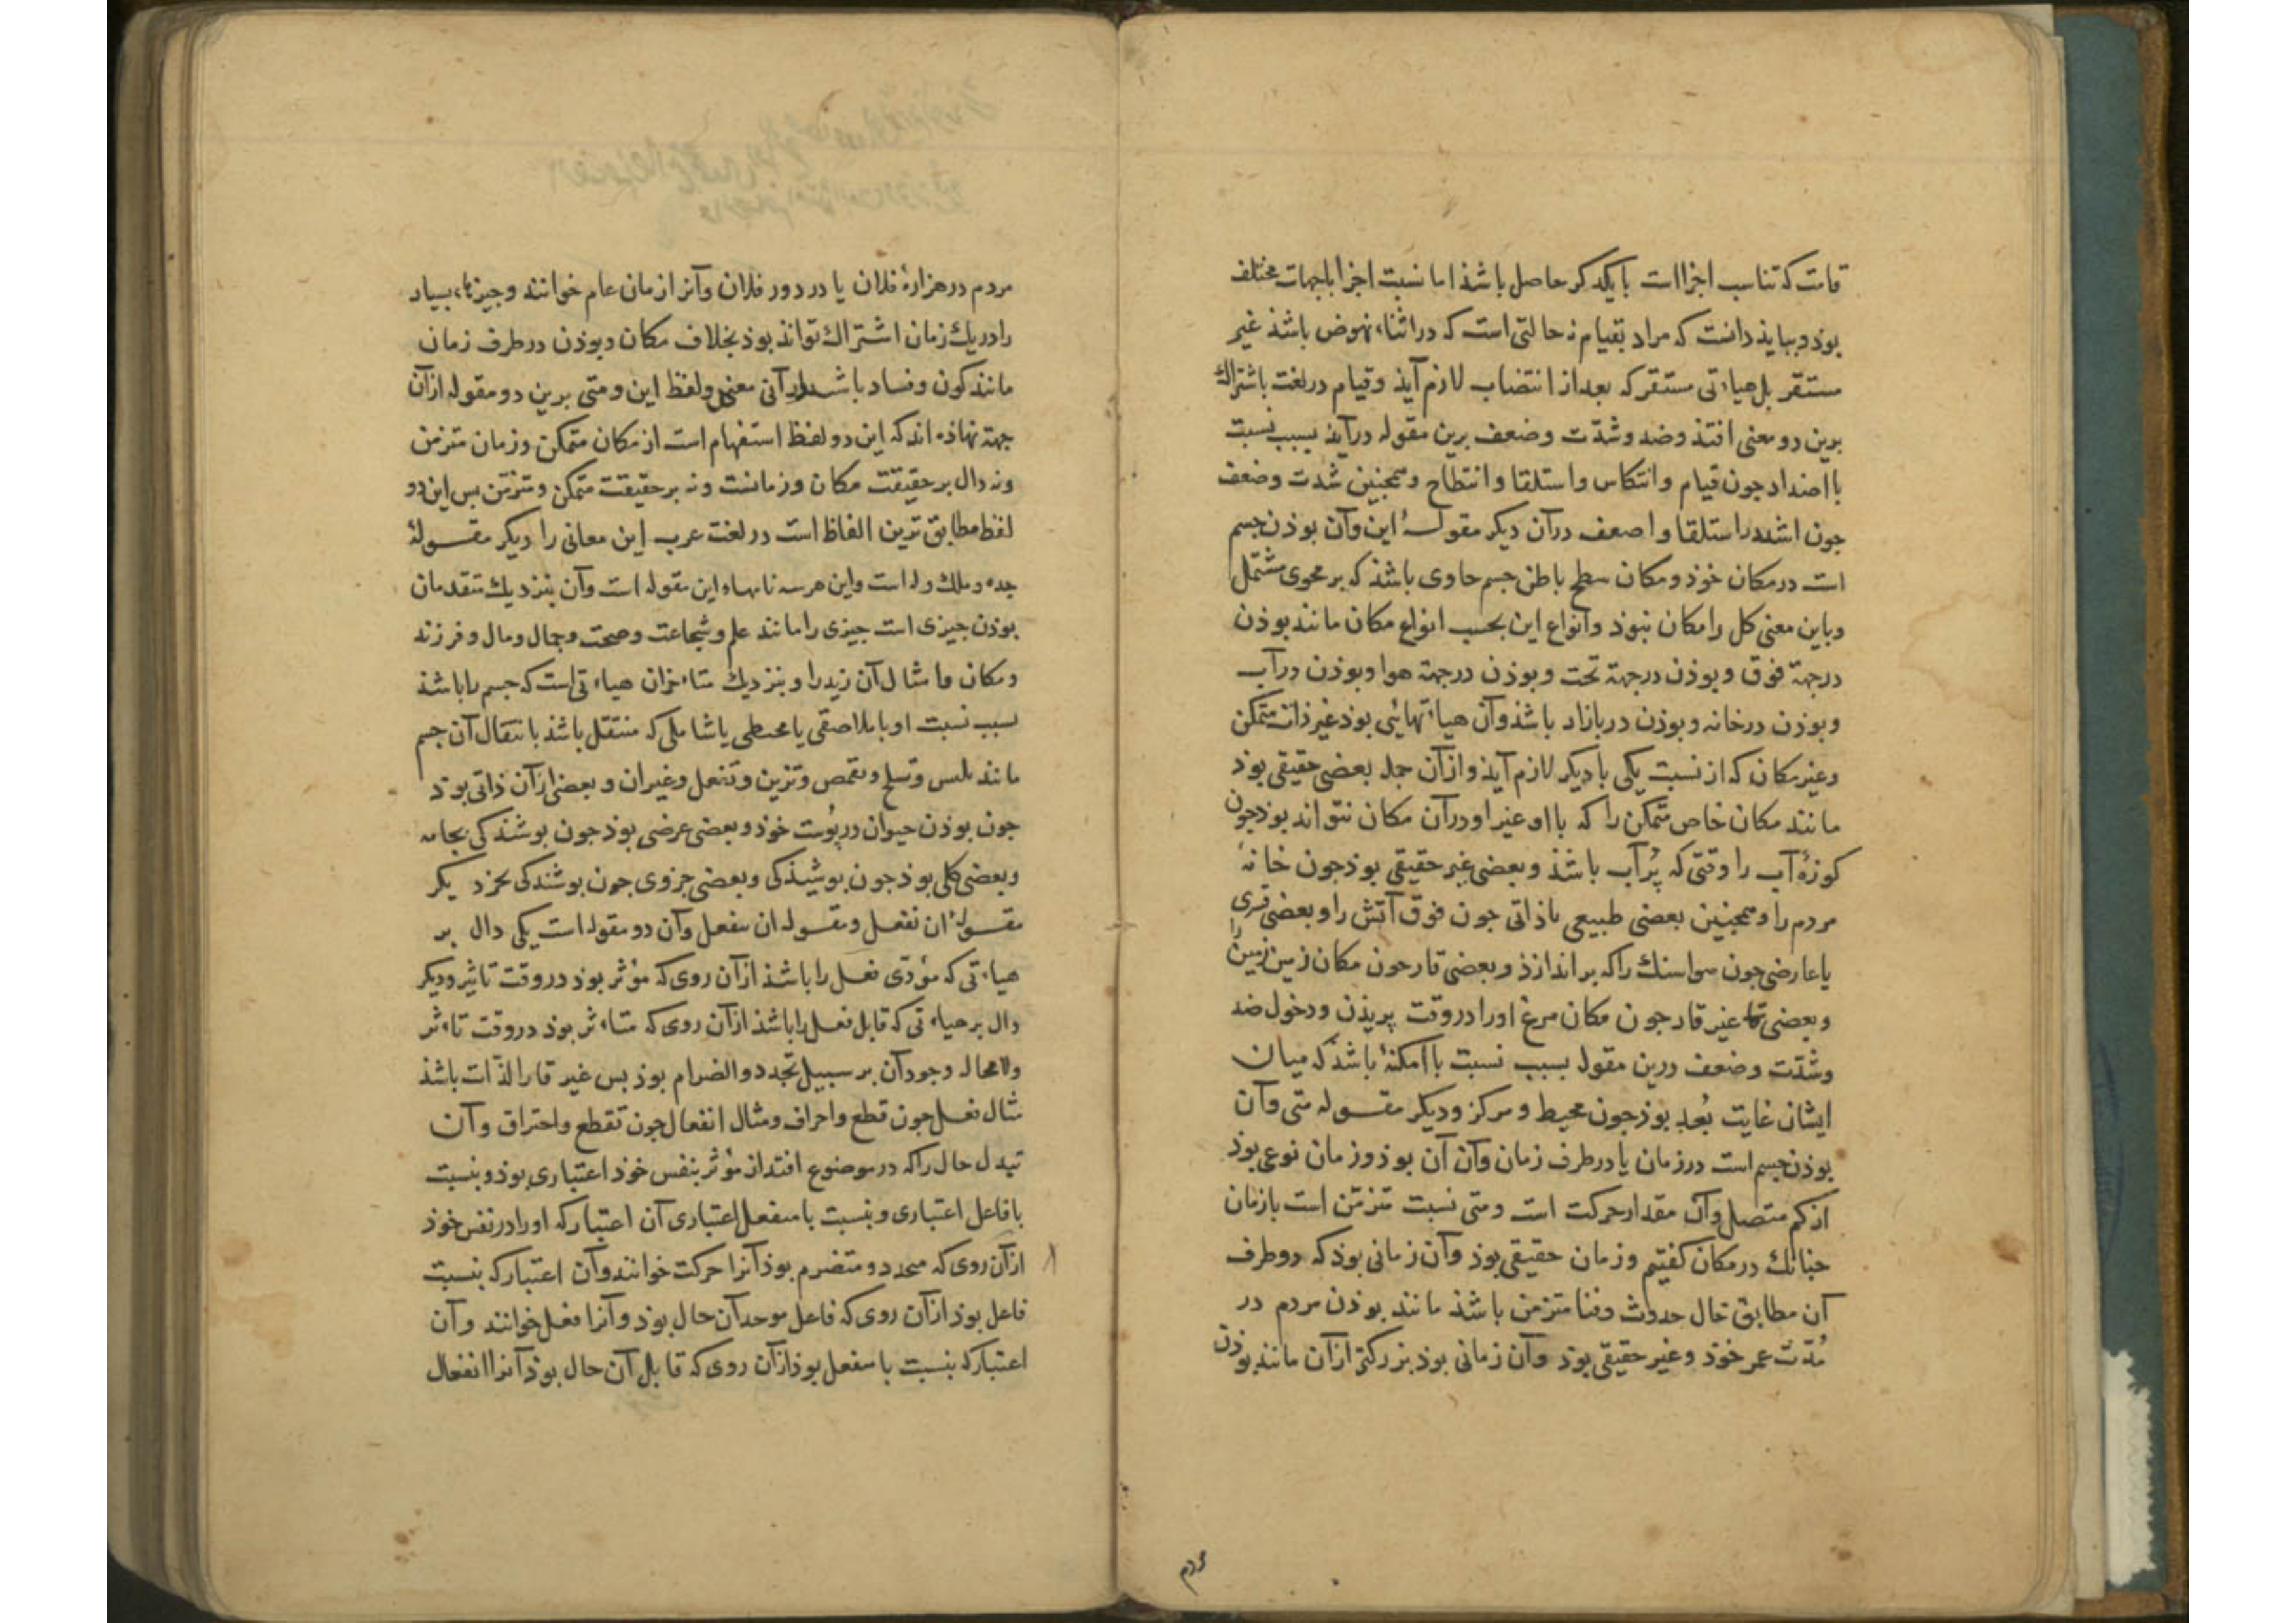 قامت که تناسب اجزا است با یکدکر حاصل باشذ اما نسبت اجزا باجهات مختلف
بوذ و بباید دانست که مراد بقیام نه حالتی است که در اثناء نهوض باشذ غیر
مستقر بل هیاءتی مستقر که بعد از انتصاب لازم آیذ وقیام در لغت باشتراک
برین دو معنی افتذ وضد وشدّت وضعف برین مقوله درآید بسبب نسبت
با اضداد جون قیام وانتکاس واستلقا وانبطاح وهمجنین شدت وضعف
جون اشد در استلقا واضعف در آن دیکر مقولهٔ این وآن بوذن جسم
است در مکان خوذ ومکان سطح باطن جسم حاوی باشذ که بر محوی مشتمل
وباین معنی کل را مکان نبوذ وانواع این بحسب انواع مکان مانند بوذن
در جهة فوق وبوذن در جهة تحت وبوذن در جهة هوا وبوذن در آب
وبوذن در خانه وبوذن در بازار باشذ وآن هیاءتهائی بوذ غیر ذات متمکن
وغیر مکان که از نسبت یکی با دیکر لازم آیذ واز آن جمله بعضی حقیقی بوذ
مانند مکان خاص متمکن را که با او غیر او در آن مکان نتواند بوذ جون
کوزهٔ آب را وقتی که پُر آب باشذ وبعضی غیر حقیقی بوذ جون خانهٔ
مردم را وهمجنین بعضی طبیعی یا ذاتی جون فوق آتش را وبعضی قسری
یا عارضی جون هوا سنک را که بر اندازذ وبعضی قار جون مکان زمین زمین را
وبعضی غیر قار جون مکان مرغ او را در وقت پریذن ودخول ضد
وشدّت وضعف درین مقوله بسبب نسبت با امکنهٔ باشذ که میان
ایشان غایت بُعد بوذ جون محیط ومرکز ودیکر مقوله متی وآن
بوذن جسم است در زمان یا در طرف زمان وآن آن بوذ وزمان نوعی بوذ
از کم متصل وآن مقدار حرکت است ومتی نسبت متزمّن است با زمان
جنانک در مکان کفتیم وزمان حقیقی بوذ وآن زمانی بوذ که دو طرف
آن مطابق حال حدوث وفنا متزمن باشذ مانند بوذن مردم در
مُدّت عمر خوذ وغیر حقیقی بوذ وآن زمانی بوذ بزرکتر از آن مانند بوذن
مردم
مردم در هزارهٔ فلان یا در دور فلان وآنرا زمان عام خوانند وجیزهاء بسیار
را در یک زمان اشتراک تواند بوذ بخلاف مکان وبوذن در طرف زمان
مانند کون وفساد باشد در آنی معنی ولفظ این ومتی برین دو مقوله از آن
جهة نهاذه اند که این دو لفظ استفهام است از مکان متمکن وزمان متزمن
ونه دال بر حقیقت مکان وزمانست ونه بر حقیقت متمکن ومتزمّن بس این دو
لفظ مطابق ترین الفاظ است در لغت عرب این معانی را دیکر مقولهٔ
جده وملک وله است واین هر سه نامهاء این مقوله است وآن بنزدیک متقدمان
بوذن جیزی است جیزی را مانند علم وشجاعت وصحت وجمال ومال وفرزند
ومکان وامثال آن زید را وبنزدیک متاءخران هیاءتی است که جسم را باشذ
بسبب نسبت او با ملاصقی یا محیطی یا شاملی که منتقل باشذ بانتقال آن جسم
مانند تلبس وتسلح وتقمص وتزین وتنعل وغیر آن وبعضی از آن ذاتی بوذ
جون بوذن حیوان در پوست خوذ وبعضی عرضی بوذ جون بوشندکی بجامه
وبعضی کلی بوذ جون بوشیذکی وبعضی جزوی جون بوشندکی بخز دیکر
مقولهٔ ان نفعل ومقوله ان منفعل وآن دو مقوله است یکی دال بر
هیاءتی که مؤدّی فعل را باشذ از آن روی که مؤثر بوذ در وقت تاثیر ودیکر
دال بر هیاءتی که قابل فعل را باشذ از آن روی که متاءثر بوذ در وقت تاءثر
ولا محاله وجود آن بر سبیل تجدد والضرام بوذ بس غیر قار الذّات باشذ
مثال فعل جون قطع واحراق ومثال انفعال جون تقطع واحتراق وآن
تبدل حال را که در موضوع افتد از مؤثر بنفس خوذ اعتباری بوذ وبنسبت
با فاعل اعتباری وبنسبت با منفعل اعتباری آن اعتبار که او را در نفس خوذ
از آن روی که متجدد ومتضرم بوذ آنرا حرکت خوانند وآن اعتبار که بنسبت
فاعل بوذ از آن روی که فاعل موجد آن حال بوذ وآنرا فعل خوانند وآن
اعتبار که بنسبت با منفعل بوذ از آن روی که قابل آن حال بوذ آنرا انفعال